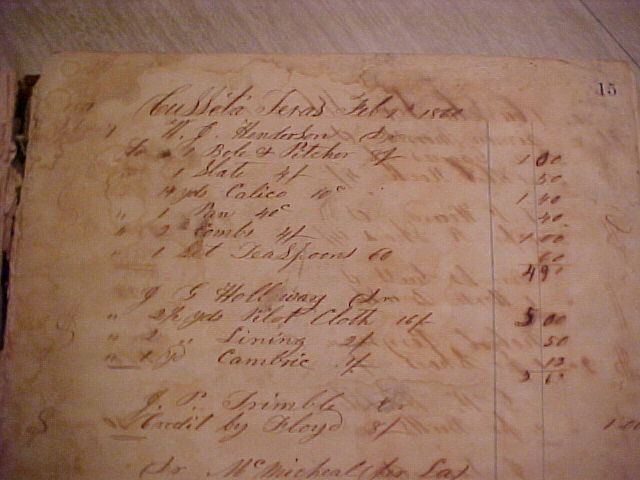 15
Cusseta Texas Feb 1st 1860
W. J. Henderson Dr
To 1 Bole & Pitcher 8/ 1 00
" 1 Slate 4/ 50
14 yds Calico 10c 1 40
" 1 Pan 40c 40
" 2 Combs 4/ 1 00
" 1 Set Teaspoons 60 60
4 90
J G Holloway Dr
" 2½ yds Pilot Cloth 16/ 5 00
" 2 " Lining 2/ 50
" 1 yd Cambric 1/ 13
5 63
J. P. Trimble Cr
Credit by Floyd 8/ 1 00
Dr McMicheal (for La)